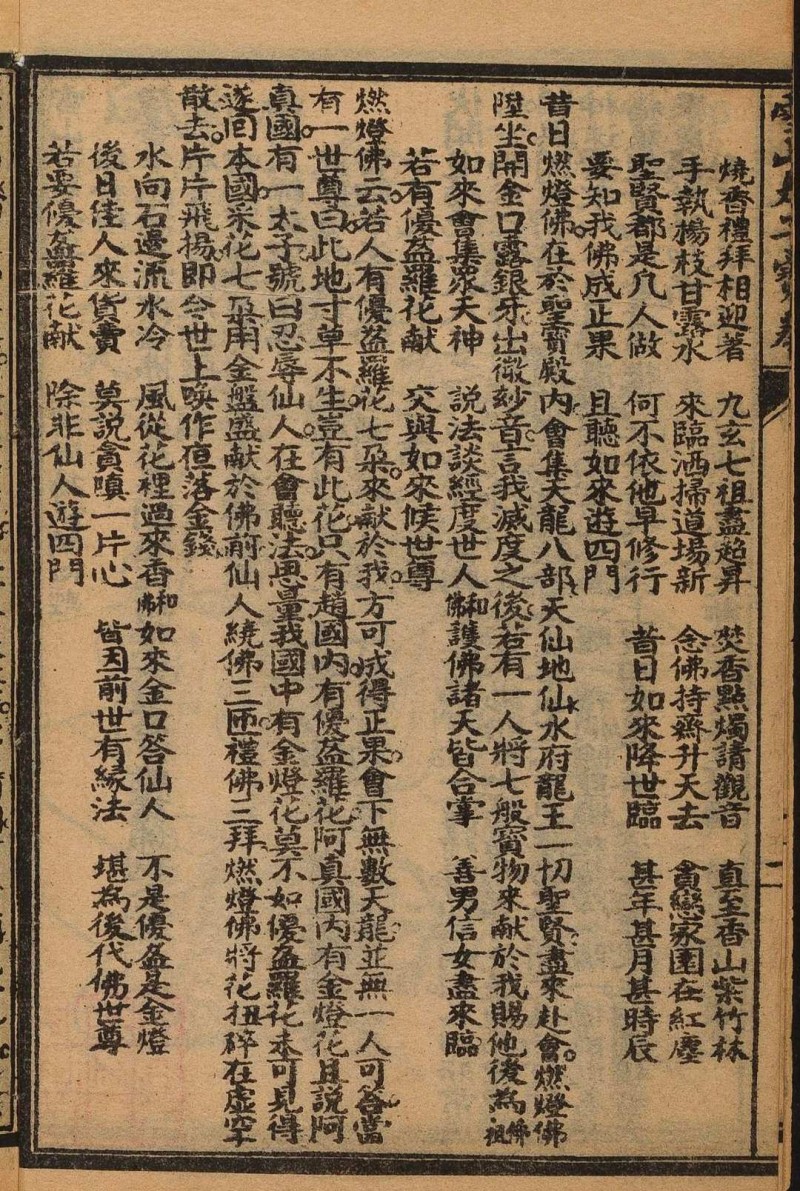 燒香禮拜相迎着　九玄七祖盡超昇　焚香點燭請觀音　直至香山紫竹林
手執楊枝甘露水　來臨洒掃道場新　念佛持齋升天去　貪戀家園在紅塵
聖賢都是凡人做　何不依他早修行　昔日如來降世臨　甚年甚月甚時辰
要知我佛成正果　且聽如來遊四門
昔日燃燈佛在於聖寶殿內會集天龍八部天仙地仙水府龍王一切聖賢盡來赴會燃燈佛
陞坐開金口露銀牙出微妙音言我滅度之後若有一人將七般寶物來献於我賜他後為佛祖
如來會集眾天神　說法談經度世人和佛　護佛諸天皆合掌　善男信女盡來臨
若有優盋羅花献　交與如來候世尊
燃燈佛云若人有優盋羅花七朶來献於我方可成得正果會下無數天龍並無一人可答當
有一世尊曰此地寸草不生豈有此花只有趙國內有優盋羅花阿真國內有金燈花且說阿
真國有一太子號曰忍辱仙人在會聽法思量我國中有金燈花莫不如優盋羅花未可見得
遂回本國采花七朶用金盤盛献於佛前仙人繞佛三匝禮佛三拜燃燈佛將花扭碎在虛空
散去片片飛揚即今世上喚作㐌落金錢
水向石邊流水冷　風從花裡過來香和佛　如來金口答仙人　不是優盋是金燈
後日佳人來貨賣　莫說貪嗔一片心　皆因前世有緣法　堪為後代佛世尊
若要優盋羅花献　除非仙人遊四門
二